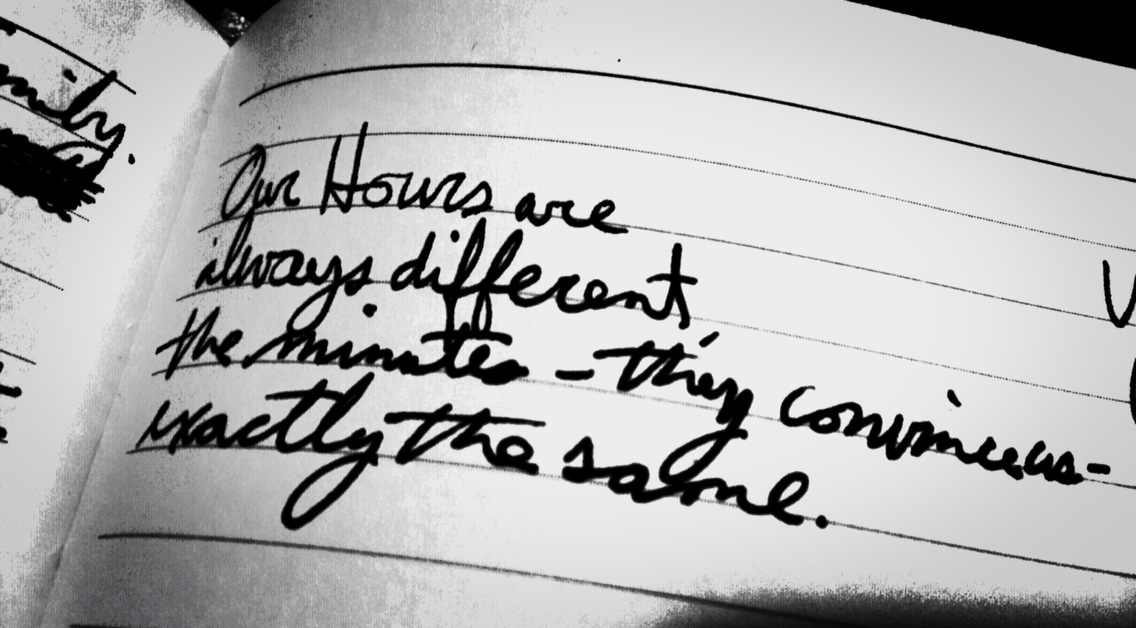 Our Hours are
always different,
the minutes – they convince us –
exactly the same.